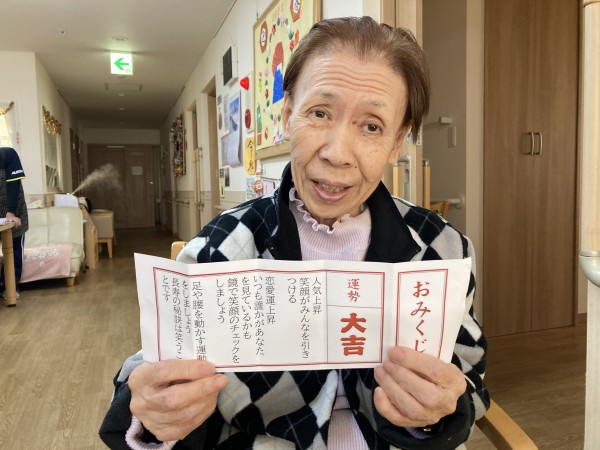 おみくじ
運勢
大吉
人気上昇
笑顔がみんなを引き
つける
恋愛運上昇
いつも誰かがあなた
を見ているかも
鏡で笑顔のチェックを
しましょう
足や腰を動かす運動
をしましょう
長寿の秘訣は笑うこ
とです